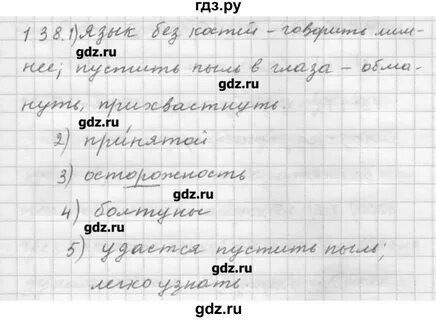 гдз.ру
138.1) Язык без костей – говорить лиш-
gdz.ru
нее; пустить пыль в глаза – обма-
gdz.ru
нуть, прихвастнуть.
gdz.ru
2) при́нятой
gdz.ru
3) осторожность
gdz.ru
4) болтуны
gdz.ru
5) удастся пустить пыль;
gdz.ru
легко узнать.
gdz.ru